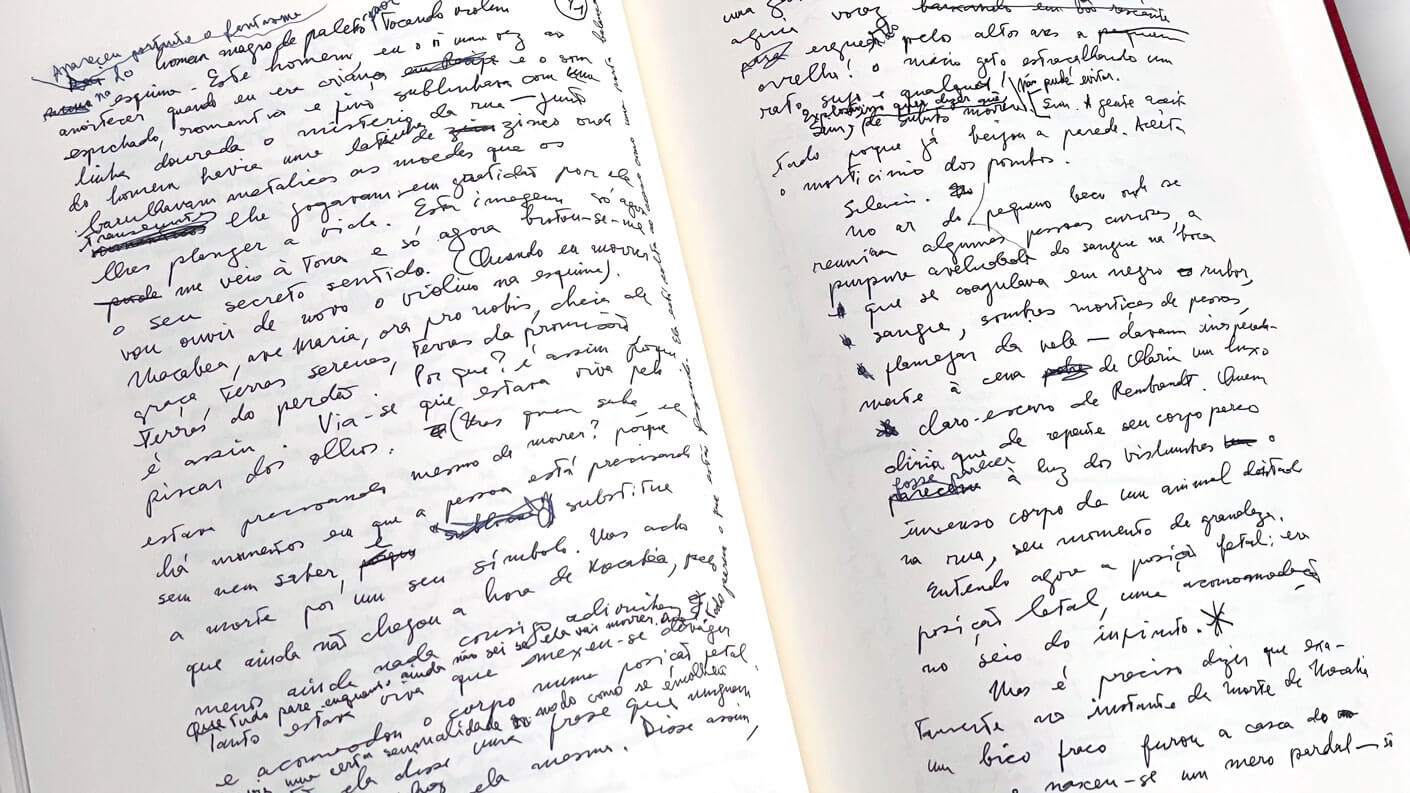 Apareceu portanto o fantasma
do homem magro de paletó tocando violino
na esquina. Este homem, eu o vi uma vez ao
anoitecer quando eu era criança e o som
espichado, romantico e fino sublinhava com uma
linha dourada o misterio da rua — junto
do homem havia uma latinha de zinco onde
barulhavam metalicas as moedas que os
transeuntes lhe jogavam em gratidão por ele
lhes planger a vida. Esta imagem só agora
me veio à tona e só agora brotou-se-me
o seu secreto sentido. (Quando eu morrer
vou ouvir de novo o violino na esquina).
Macabéa, ave Maria, ora pro nobis, cheia de
graça, terras serenas, terras da promissão
terras do perdão. Por que? é assim porque
é assim. Via-se que estava viva pelo
piscar dos olhos. (Mas quem sabe se
estava precisando mesmo de morrer? porque
há momentos em que a pessoa está precisando
sem nem saber, e substitue
a morte por um seu símbolo. Mas acho
que ainda não chegou a hora de Macabéa, pelo
menos ainda nada consigo adivinhar
Que tudo pare enquanto ainda não sei se ela vai morrer.
Tanto estava viva que mexeu-se devagar
e acomodou o corpo numa posição fetal.
uma certa sensualidade no modo como se encolheu
ela disse uma frase que ninguem
ela mesma. Disse assim,
voraz baixando em voo rasante
águia erguendo pelo altos ares a pequena
ovelha! o macio gato estraçalhando um
rato sujo e qualquer!
não pude evitar.
Explosivíssimo quer dizer que
de subito morreu Eu vi. A gente aceita
tudo porque já beijou a parede. Aceita
o morticinio dos pombos.
Silencio.
No ar do pequeno beco onde se
reuniam algumas pessoas curiosas, a
purpura aveludada do sangue na boca
que se coagulava em negro rubor,
sangue, sombras mortiças de pessoas
flamejar da vela — davam inespera-
mente à cena de Maria um luxo
claro-escuro de Rembrandt. Quem
diria que de repente seu corpo parco
fosse parecer à luz dos vislumbres o
imenso corpo de um animal deitado
na rua, seu momento de grandeza.
Entendo agora a posição fetal: era
posição letal, uma acomodação
no seio do infinito.
Mas é preciso dizer que exa-
tamente no instante da morte de Macabéa
um bico fraco furou a casca do
nasceu-se um mero pardal — só